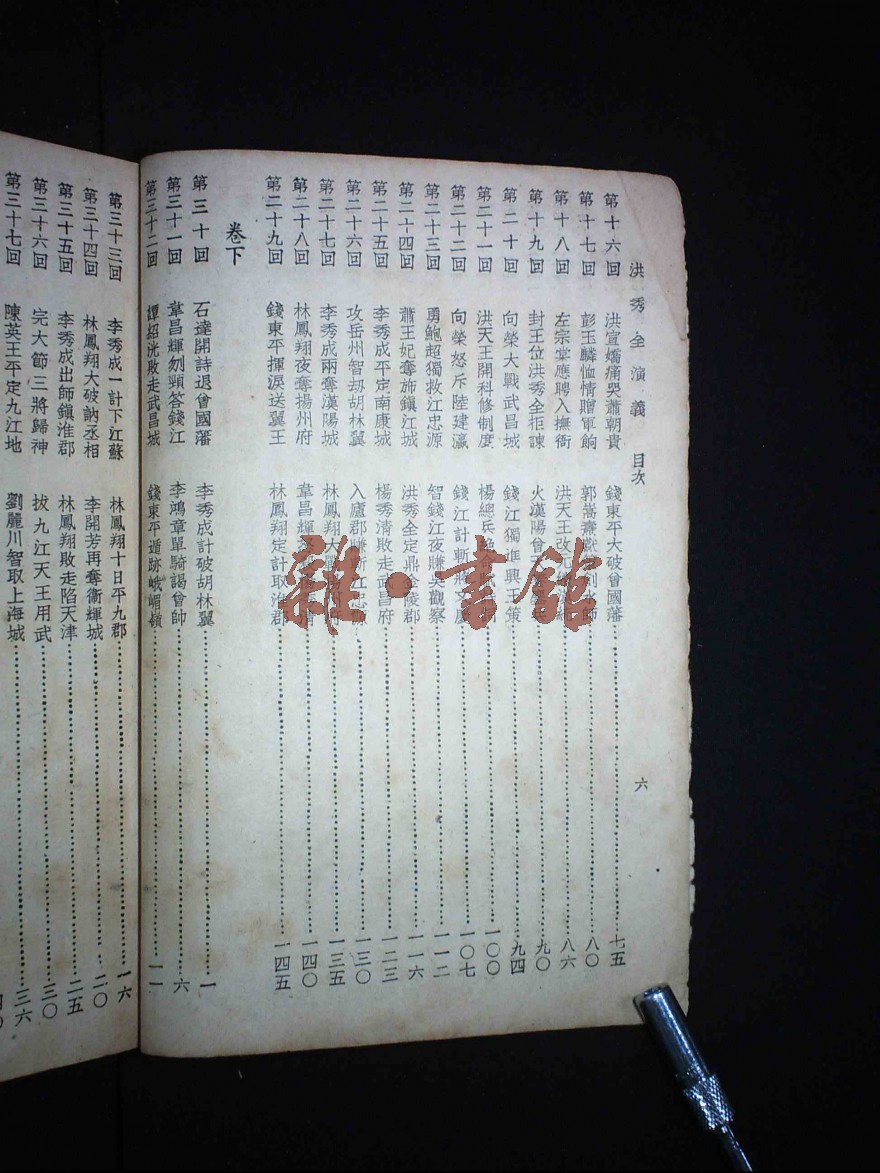 洪秀全演義 目次 六
第十六回 洪宣嬌痛哭蕭朝貴 錢東平大破曾國藩 七五
第十七回 彭玉麟恤情贈軍餉 郭嵩燾 水師 八〇
第十八回 左宗棠應聘入撫衙 洪天王改 八六
第十九回 封王位洪秀全拒諫 火漢陽曾 九〇
第二十回 向榮大戰武昌城 錢江獨進興王策 九四
第二十一回 洪天王開科修制度 楊總兵 一〇〇
第二十二回 向榮怒斥陸建瀛 錢江計斬蔣文慶 一〇七
第二十三回 勇鮑超獨救江忠源 智錢江夜賺吳觀察 一一二
第二十四回 蕭王妃奪旆鎭江城 洪秀全定鼎金陵郡 一一六
第二十五回 李秀成平定南康城 楊秀清敗走武昌府 一二三
第二十六回 攻岳州智劫胡林翼 入廬郡賺斬江忠 一三〇
第二十七回 李秀成兩奪漢陽城 林鳳翔大戰 府 一三五
第二十八回 林鳳翔夜奪揚州府 韋昌輝 一四〇
第二十九回 錢東平揮淚送翼王 林鳳翔定計取淮郡 一四五
卷下
第三十回 石達開詩退曾國藩 李秀成計破胡林翼 一
第三十一回 韋昌輝刎頸答錢江 李鴻章單騎謁曾帥 六
第三十二回 譚紹洸敗走武昌城 錢東平遁跡峨嵋嶺 一一
第三十三回 李秀成一計下江蘇 林鳳翔十日平九郡 一六
第三十四回 林鳳翔大破訥丞相 李開芳再奪衞輝城 二〇
第三十五回 李秀成出師鎭淮郡 林鳳翔敗走陷天津 二五
第三十六回 完大節三將歸神 拔九江天王用武 三〇
第三十七回 陳英王平定九江地 劉麗川智取上海城 三六
雜·書館